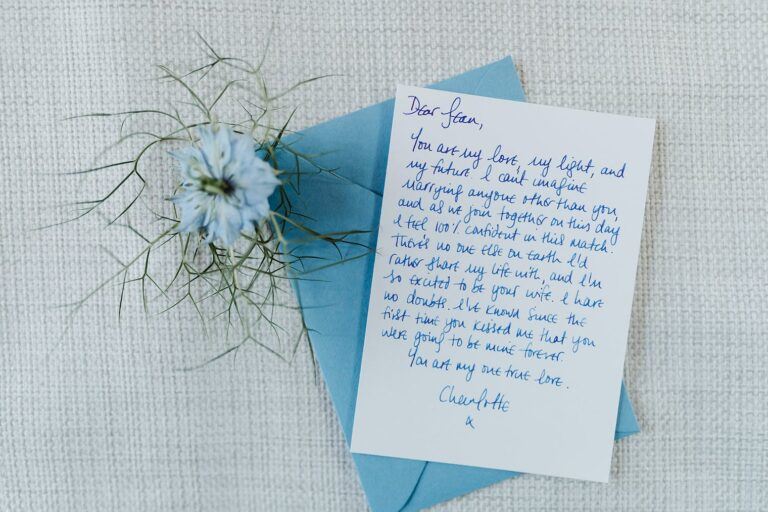 Dear Sean,
You are my love, my light, and
my future. I can't imagine
marrying anyone other than you,
and as we join together on this day
I feel 100% confident in this match.
There's no one else on Earth I'd
rather share my life with, and I'm
so excited to be your wife. I have
no doubts. I've known since the
first time you kissed me that you
were going to be mine forever.
You are my one true love.
Charlotte
x